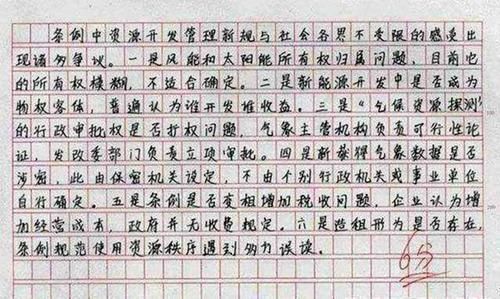 条例中资源开发管理新规与社会各界不受限的感受出
现诸多争议。一是风能和太阳能所有权归属问题，目前它
的所有权模糊，不适合确定。二是新能源开发中是否成为
物权客体，普遍认为谁开发谁收益。三是“气候资源探测”
的行政审批权是否扩权问题，气象主管机构负责可行性论
证，发改委部门负责立项审批。四是新获得气象数据是否
涉密，此由保密机关设定，不由个别行政机关或事业单位
自行确定。五是条例是否变相增加税收问题，企业认为增
加经营成本，政府并无收费规定。六是造租形为是否存在，
条例规范使用资源秩序遇到多方误读。
6分